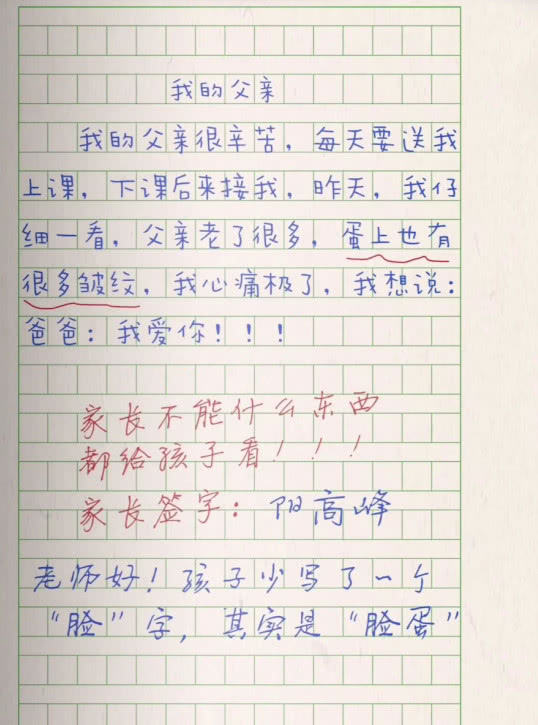 我的父亲
我的父亲很辛苦，每天要送我
上课，下课后来接我，昨天，我仔
细一看，父亲老了很多，蛋上也有
很多皱纹，我心痛极了，我想说：
爸爸：我爱你！！！
家长不能什么东西
都给孩子看！！！
家长签字：阳高峰
老师好！孩子少写了一个
“脸”字，其实是“脸蛋”